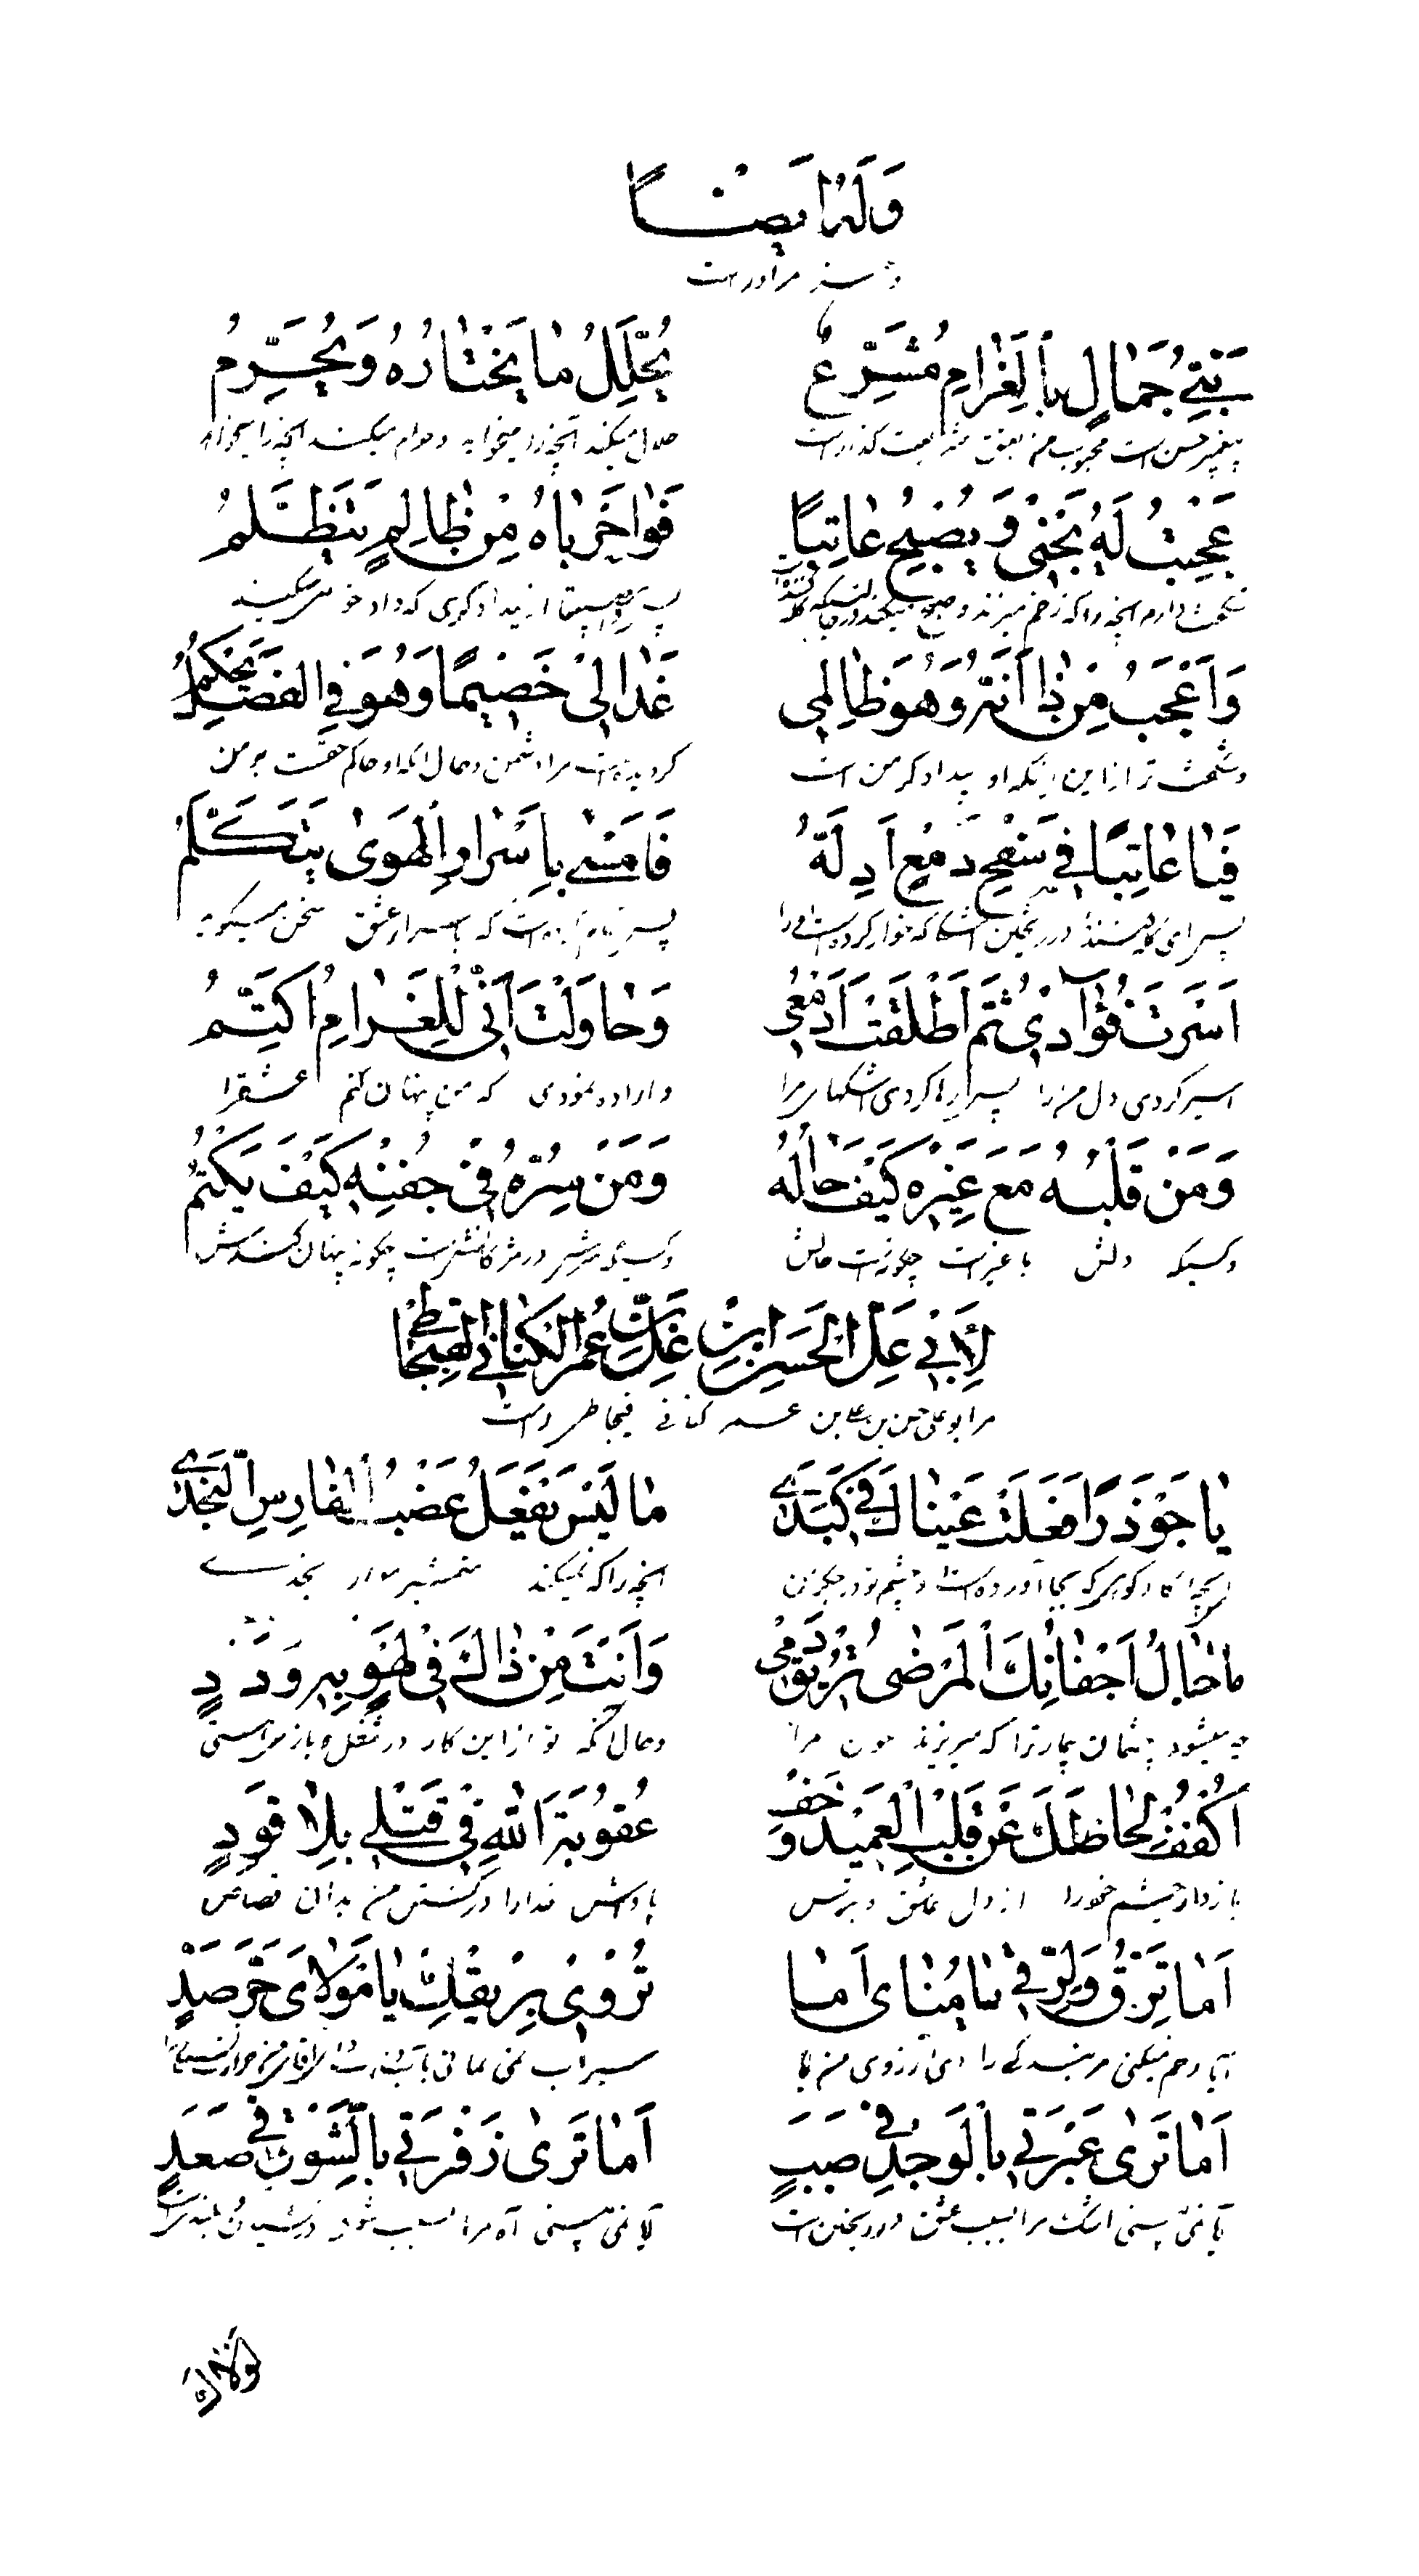 وَلَهُ ايضًا
مراوراست
نَبِيُّ جَمَالٍ بِالْغَرَامِ مُشَرِّعٌ يُحَلِّلُ مَا يَخْتَارُهُ وَيُحَرِّمُ
پیغمبر حسن است محبوب من بعشق شریعت گذار است حلال میکند آنچه را میخواهد و حرام میکند آنچه را میخواهد
عَجِبْتُ لَهُ يَجْنِي وَيُصْبِحُ عَاتِبًا فَوَاحَرَبَاهُ مِنْ ظَالِمٍ يَتَظَلَّمُ
شگفت دارم آنچه را که زخم میزند و صبح میکند از بیدادگری که داد خود میکند
وَأَعْجَبُ مِنْ ذَا أَنَّهُ وَهُوَ ظَالِمِي غَدَا لِي خَصِيمًا وَهُوَ فِي الْفَصْلِ يَحْكُمُ
و شگفت تر از این اینکه او بیدادگر من است گردیده است مرا دشمن و حال آنکه او حاکم حقست بر من
فَيَا عَاتِبًا فِي سَفْحِ دَمْعٍ أَدِلَّةُ فَأَمْسَى بِأَسْرَارِ الْهَوَى يَتَكَلَّمُ
پس ای در ریختن اشکی که خوار کرده است مرا پس که باسرار عشق سخن میگوید
أَسَرْتَ فُؤَادِي ثُمَّ أَطْلَقْتَ أَدْمُعِي وَحَاوَلْتَ أَنِّي لِلْغَرَامِ أُكَتِّمُ
اسیر کردی دل مرا پس رها کردی اشکهای مرا و اراده نمودی که من پنهان کنم عشق را
وَمَنْ قَلْبُهُ مَعَ غَيْرِهِ كَيْفَ حَالُهُ وَمَنْ سِرُّهُ فِي جَفْنِهِ كَيْفَ يَكْتُمُ
و کسیکه دلش با غیر است چگونه است حالش و کسیکه سرش در مژگانش است چگونه پنهان کندش
لِأَبِي عَلِيّ الْحَسَنِ ابْنِ عَلِيّ بْنِ عُمَرَ الْكِنَانِيّ الْقِيجَاطِي
مر ابو علی حسن بن علی بن عمر کنانی قیجاطی راست
يَا جَوْذَرًا فَعَلَتْ عَيْنَاكَ فِي كَبِدِي مَا لَيْسَ يَفْعَلُ عَضْبُ الْفَارِسِ النَّجِدِ
ای بچه گاو کوهی که بجا آورده است دو چشم تو در جگر من آنچه را که نمیکند شمشیر سوار نجدی
مَا حَالُ أَجْفَانِكَ الْمَرْضَى تُرِيقُ دَمِي وَأَنْتَ مِنْ ذَاكَ فِي لَهْوٍ وَفِي دَدٍ
چه میشود چشمان بیمار ترا که میریزند خون مرا و حال آنکه تو از این کار در شغل و بازی هستی
اُكْفُفْ لِحَاظَكَ عَنْ قَلْبِ الْعَمِيدِ وَخَفْ عُقُوبَةَ اللهِ فِي قَتْلِي بِلَا قَوَدٍ
باز دار چشم خود را از دل عاشق و بترس پاداش خدا را در کشتن من بدون قصاص
أَمَا تَرِقُّ وَلِرِّقِّي يَا مُنَايَ أَمَا تُرْوِي بِرِيقِكَ يَا مَوْلَايَ حَرَّ صَدٍ
آیا رحم نمیکنی مر بندگی را ای آرزوی من آیا سیراب نمی نمائی بآب
أَمَا تَرَى عَبْرَتِي بِالْوَجْدِ فِي صَبَبٍ أَمَا تَرَى زَفْرَتِي بِالشَّوْقِ فِي صَعَدٍ
آیا نمی بینی اشک مرا بسبب عشق در ریختن است آیا نمی بینی آه مرا بسبب شوق در بلند شدن